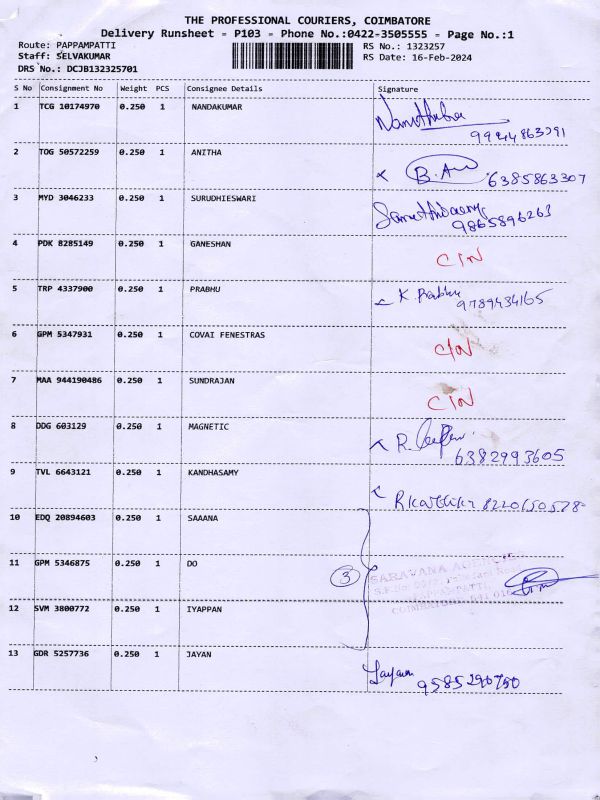 THE PROFESSIONAL COURIERS, COIMBATORE
Delivery Runsheet - P103 - Phone No.:0422-3505555 - Page No.:1
Route: PAPPAMPATTI RS No.: 1323257
Staff: SELVAKUMAR RS Date: 16-Feb-2024
DRS No.: DCJB132325701
S No Consignment No Weight PCS Consignee Details Signature
1 TCG 10174970 0.250 1 NANDAKUMAR
99444863391
2 TOG 50572259 0.250 1 ANITHA
6385863307
3 MYD 3046233 0.250 1 SURUDHIESWARI
9865896263
4 PDK 8285149 0.250 1 GANESHAN C/N
5 TRP 4337900 0.250 1 PRABHU K. Prabhu
9789434165
6 GPM 5347931 0.250 1 COVAI FENESTRAS C/N
7 MAA 944190486 0.250 1 SUNDRAJAN C/N
8 DDG 603129 0.250 1 MAGNETIC R.
6382993605
9 TVL 6643121 0.250 1 KANDHASAMY
R karthik 8220150528
10 EDQ 20894603 0.250 1 SAAANA
11 GPM 5346875 0.250 1 DO 3
SARAVANA AGENCIES
COIMBATORE - 641 016
12 SVM 3800772 0.250 1 IYAPPAN
13 GDR 5257736 0.250 1 JAYAN
9585290750